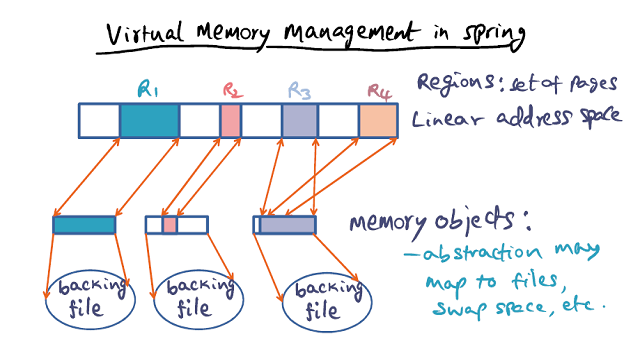 Virtual Memory Management in spring
R1 R2 R3 R4
Regions: set of pages
Linear address space
memory objects:
- abstraction may
map to files,
swap space, etc.
backing
file
backing
file
backing
file